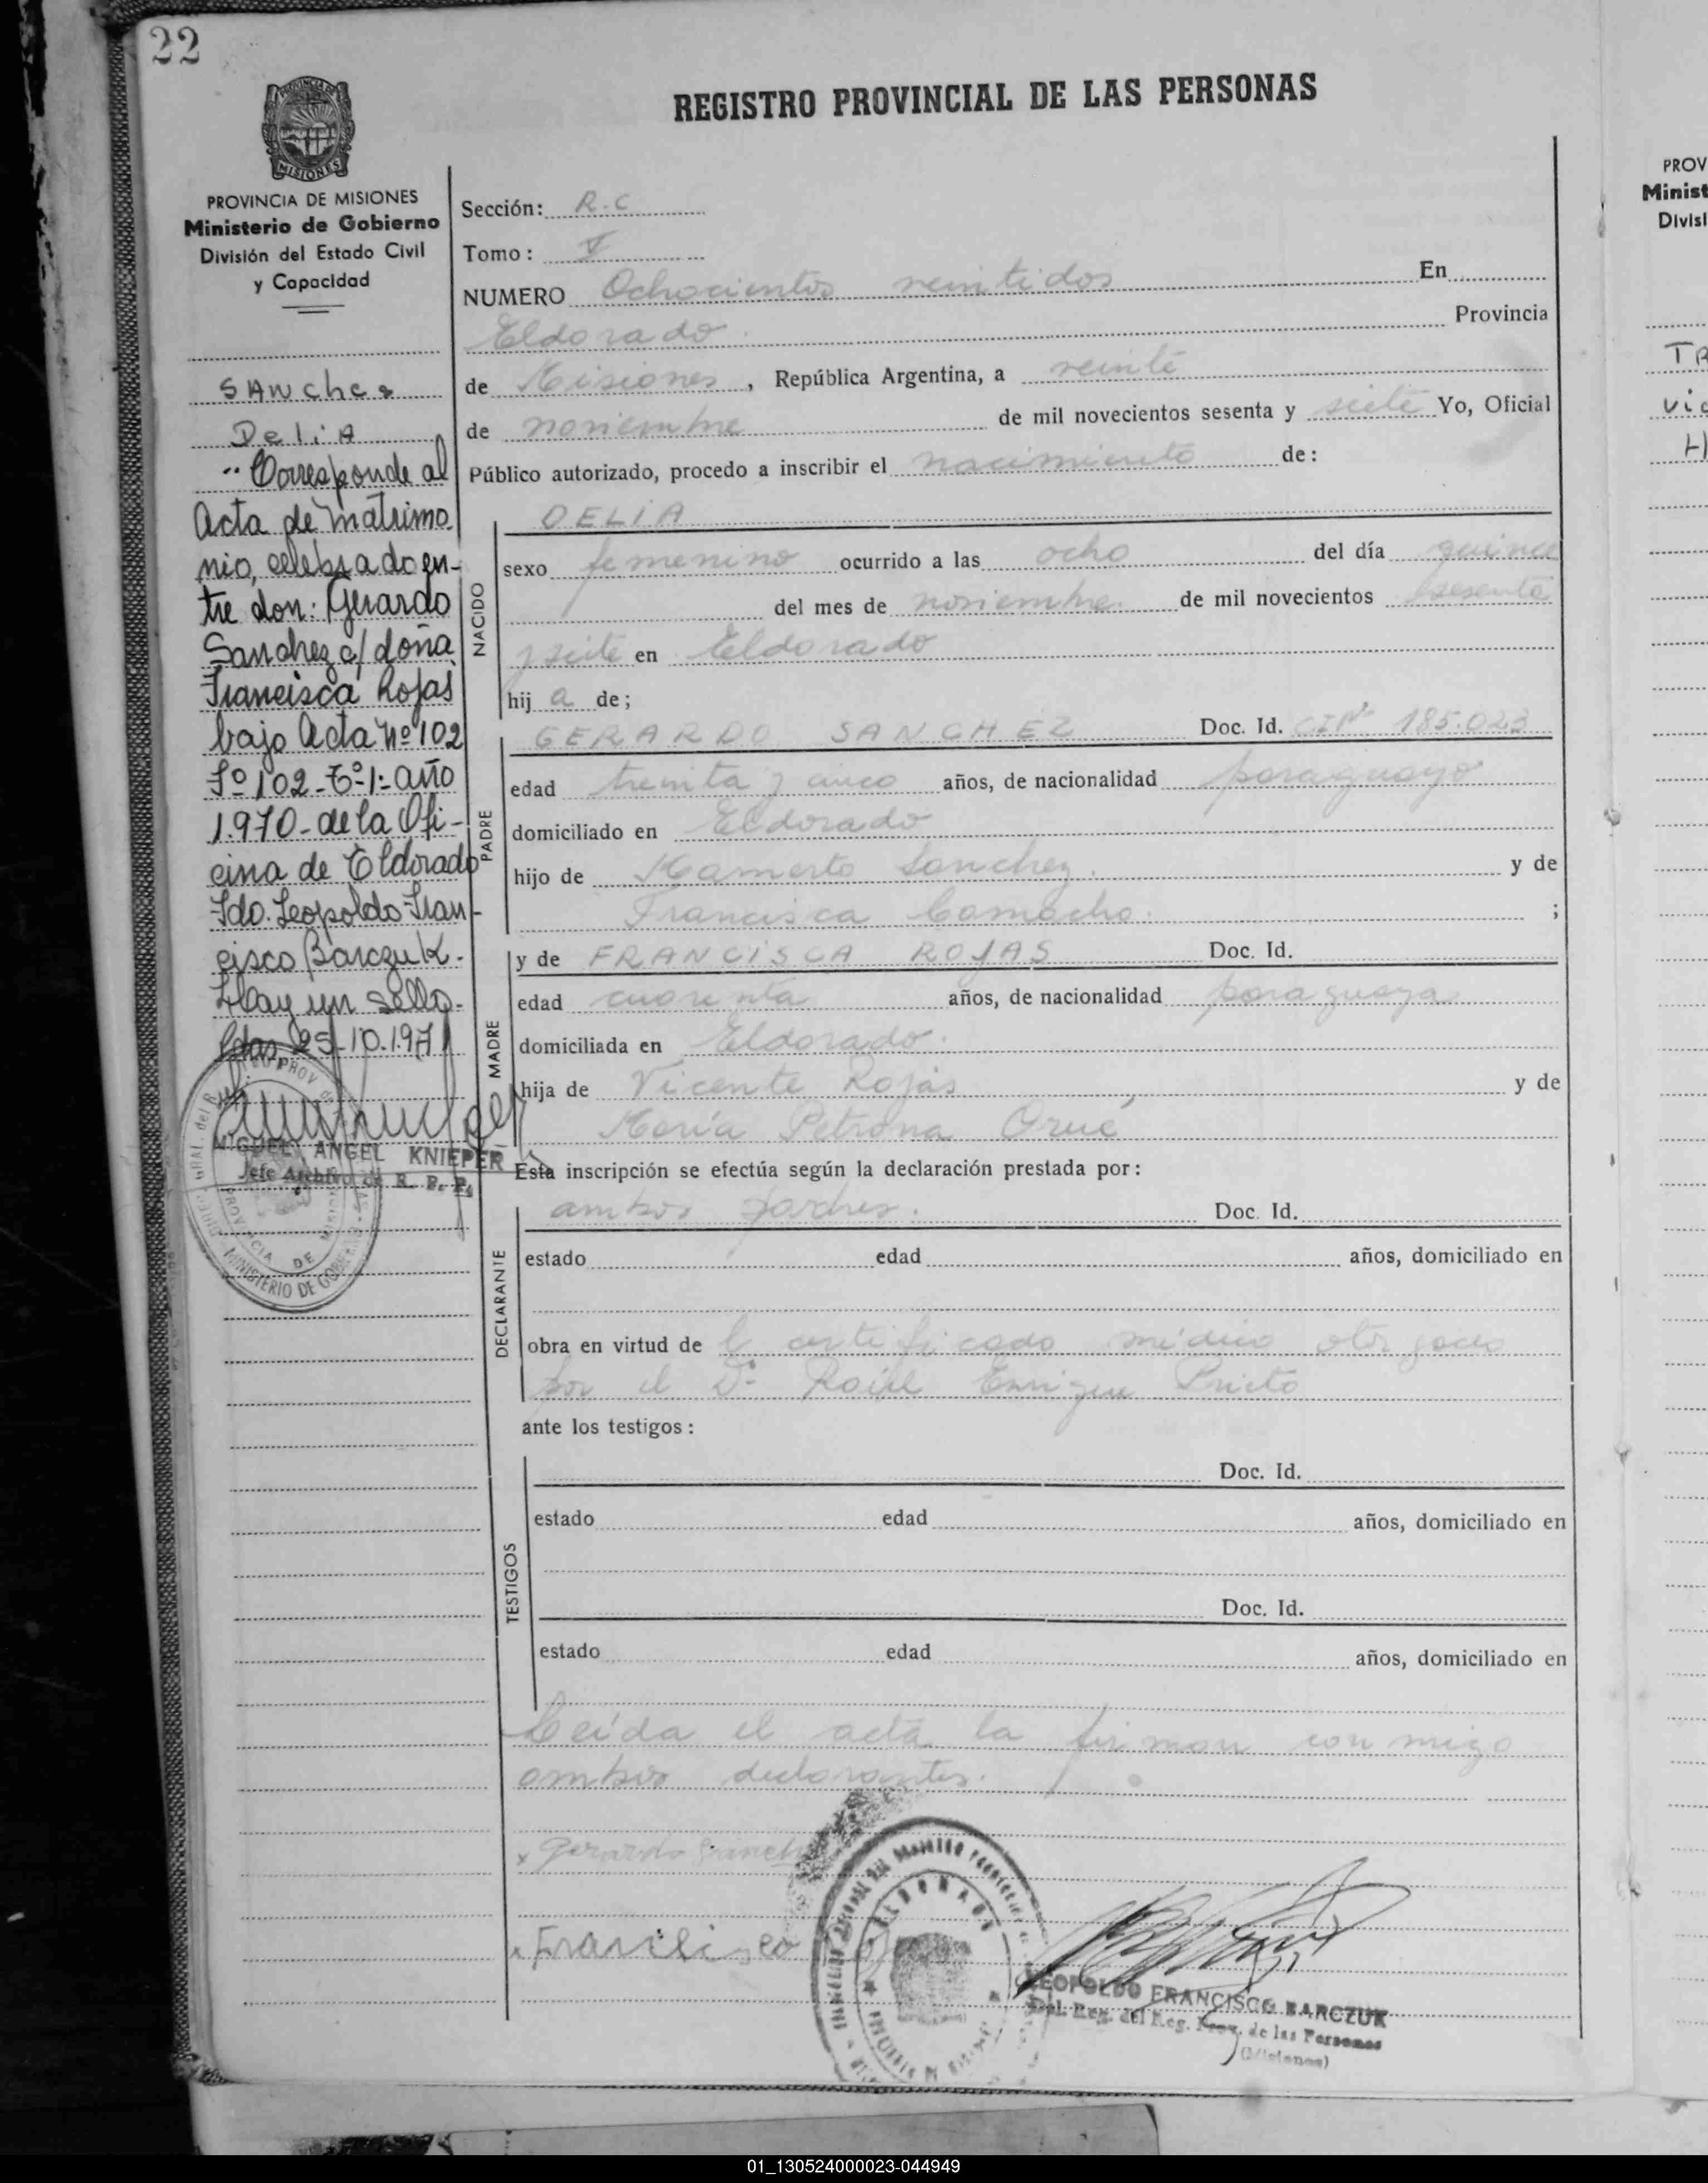 22
REGISTRO PROVINCIAL DE LAS PERSONAS
MISIONES
PROVINCIA DE MISIONES
Ministerio de Gobierno
División del Estado Civil
y Capacidad
SANchez
DeliA
"Corresponde al
Acta de matrimo
nio, celebrado en-
tre don: Gerardo
Sanchez c/ doña
Francisca Rojas
bajo Acta Nº 102
Fº 102-Tº 1-año
1.970-de la Ofi-
cina de Eldorado
Fdo. Leopoldo Fran-
cisco Barczuk.
Hay un sello.
Pdas, 25-10.1971
MIGUEL ANGEL KNIEPER
Jefe Archivo de R. P. P.
PROVINCIA DE MISIONES
MINISTERIO DE GOBIERNO
Sección: R.C
Tomo: V
NUMERO Ochocientos veintidos En
Eldorado Provincia
de Misiones, República Argentina, a veinte
de noviembre de mil novecientos sesenta y siete Yo, Oficial
Público autorizado, procedo a inscribir el nacimiento de:
DELIA
NACIDO
sexo femenino ocurrido a las ocho del día quince
del mes de noviembre de mil novecientos sesenta
y siete en Eldorado
hija de;
PADRE
GERARDO SANCHEZ Doc. Id. CI Nº 185.023
edad treinta y cinco años, de nacionalidad paraguayo
domiciliado en Eldorado
hijo de Mamerto Sanchez. y de
Francisca Camacho. ;
MADRE
y de FRANCISCA ROJAS Doc. Id.
edad cuarenta años, de nacionalidad paraguaya
domiciliada en Eldorado.
hija de Vicente Rojas y de
María Petrona Orué
Esta inscripción se efectúa según la declaración prestada por:
DECLARANTE
ambos padres. Doc. Id.
estado edad años, domiciliado en
obra en virtud de l certificado médico otorgado
por el Dr. Raúl Enrique Prieto
ante los testigos:
TESTIGOS
Doc. Id.
estado edad años, domiciliado en
Doc. Id.
estado edad años, domiciliado en
Leída el acta la firman conmigo
ambos declarantes.
x Gerardo Sanch
ELDORADO
LEOPOLDO FRANCISCO BARCZUK
Del. Reg. del Reg. Prov. de las Personas
(Misiones)
PROV
Minist
Divisi
01_130524000023-044949